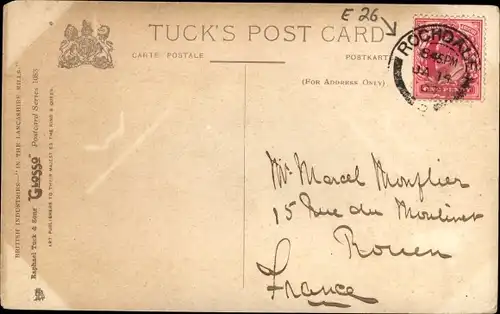 E 26
TUCK'S POST CARD
CARTE POSTALE
POSTKARTE
(FOR ADDRESS ONLY)
ROCHDALE
9 45 PM
JA 15
ONE PENNY
BRITISH INDUSTRIES—"IN THE LANCASHIRE MILLS."
Raphael Tuck & Sons' "GLOSSO" Postcard Series 1083
ART PUBLISHERS TO THEIR MAJESTIES THE KING & QUEEN.
Mr Marcel Monflier
15 Rue du Moulinet
Rouen
France